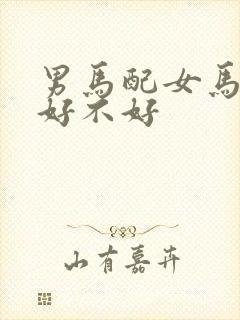 男馬配女馬
好不好
山有嘉卉